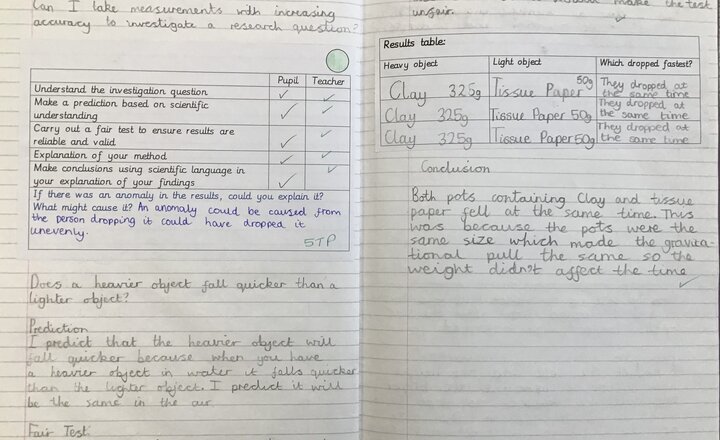 Can I take measurements with increasing
accuracy to investigate a research question?
Pupil Teacher
Understand the investigation question
Make a prediction based on scientific
understanding
Carry out a fair test to ensure results are
reliable and valid
Explanation of your method
Make conclusions using scientific language in
your explanation of your findings
If there was an anomaly in the results, could you explain it?
What might cause it? An anomaly could be caused from
the person dropping it could have dropped it
unevenly.
STP
Does a heavier object fall quicker than a
lighter object?
Prediction
I predict that the heavier object will
fall quicker because when you have
a heavier object in water it falls quicker
than the lighter object. I predict it will
be the same in the air
Fair Test.
make the test
unfair.
Results table:
Heavy object Light object Which dropped fastest?
Clay 325g Tissue Paper 50g They dropped at
the same time
Clay 325g Tissue Paper 50g They dropped at
the same time
Clay 325g Tissue Paper 50g They dropped at
the same time
Conclusion
Both pots containing Clay and tissue
paper fell at the same time. This
was because the pots were the
same size which made the gravita-
tional pull the same so the
weight didn't affect the time